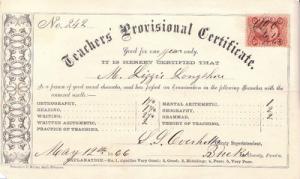 No. 242
Teachers Provisional Certificate.
Good for one year only.
IT IS HEREBY CERTIFIED THAT
M. Lizzie Longshore
Is a person of good moral character, and has passed an Examination in the following Branches with the
annexed results:
ORTHOGRAPHY,
READING,
WRITING,
WRITTEN ARITHMETIC
PRACTICE OF TEACHING,
MENTAL ARITHMETIC,
GEOGRAPHY,
GRAMMAR,
THEORY OF TEACHING,
S. G. County Superintendent,
May 12th 66
Bucks County, Penn'a.
EXPLANATION.—No. 1, signifies Very Good; 2, Good; 3, Middling; 4, Poor; 5, Very Poor.